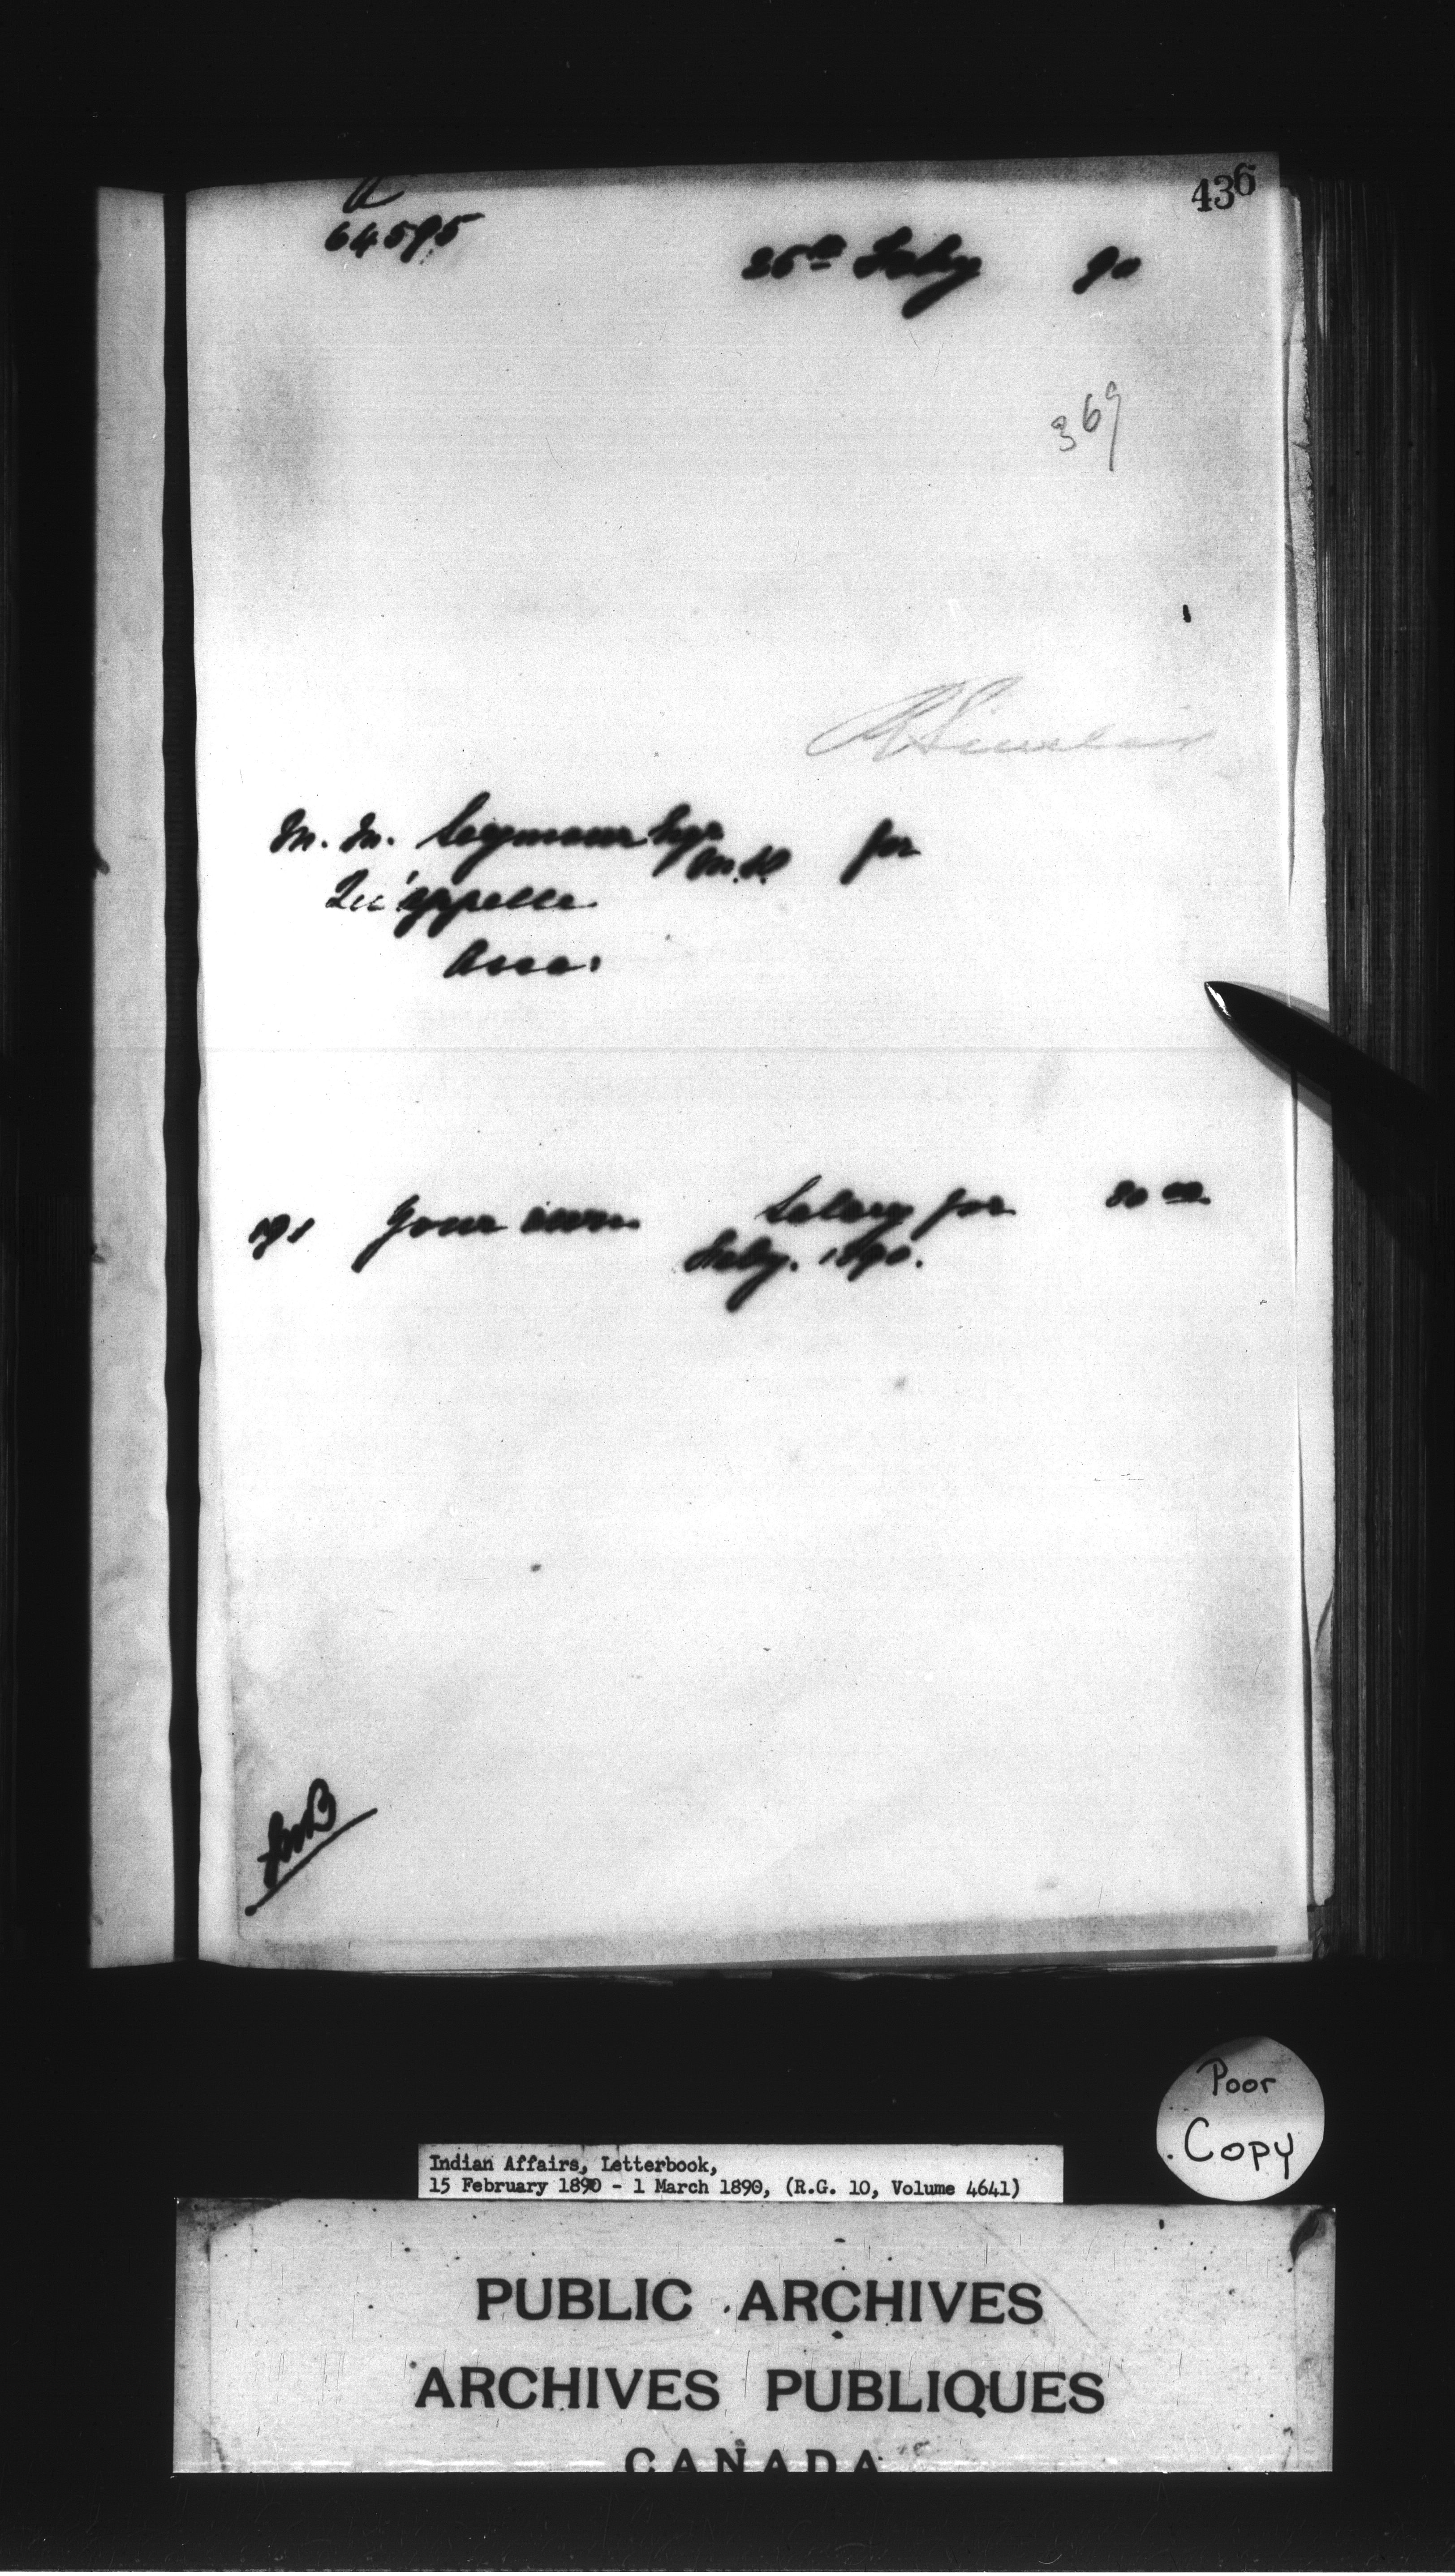 436
64595
25th Feby 90
369
Sinclair
M. M. Seymour Esqr
M.D. for
Qu'appelle
Assa.
191 Your own Salary for 80 00
Feby. 1890.
Poor
Copy
Indian Affairs, Letterbook,
15 February 1890 - 1 March 1890, (R.G. 10, Volume 4641)
PUBLIC ARCHIVES
ARCHIVES PUBLIQUES
CANADA